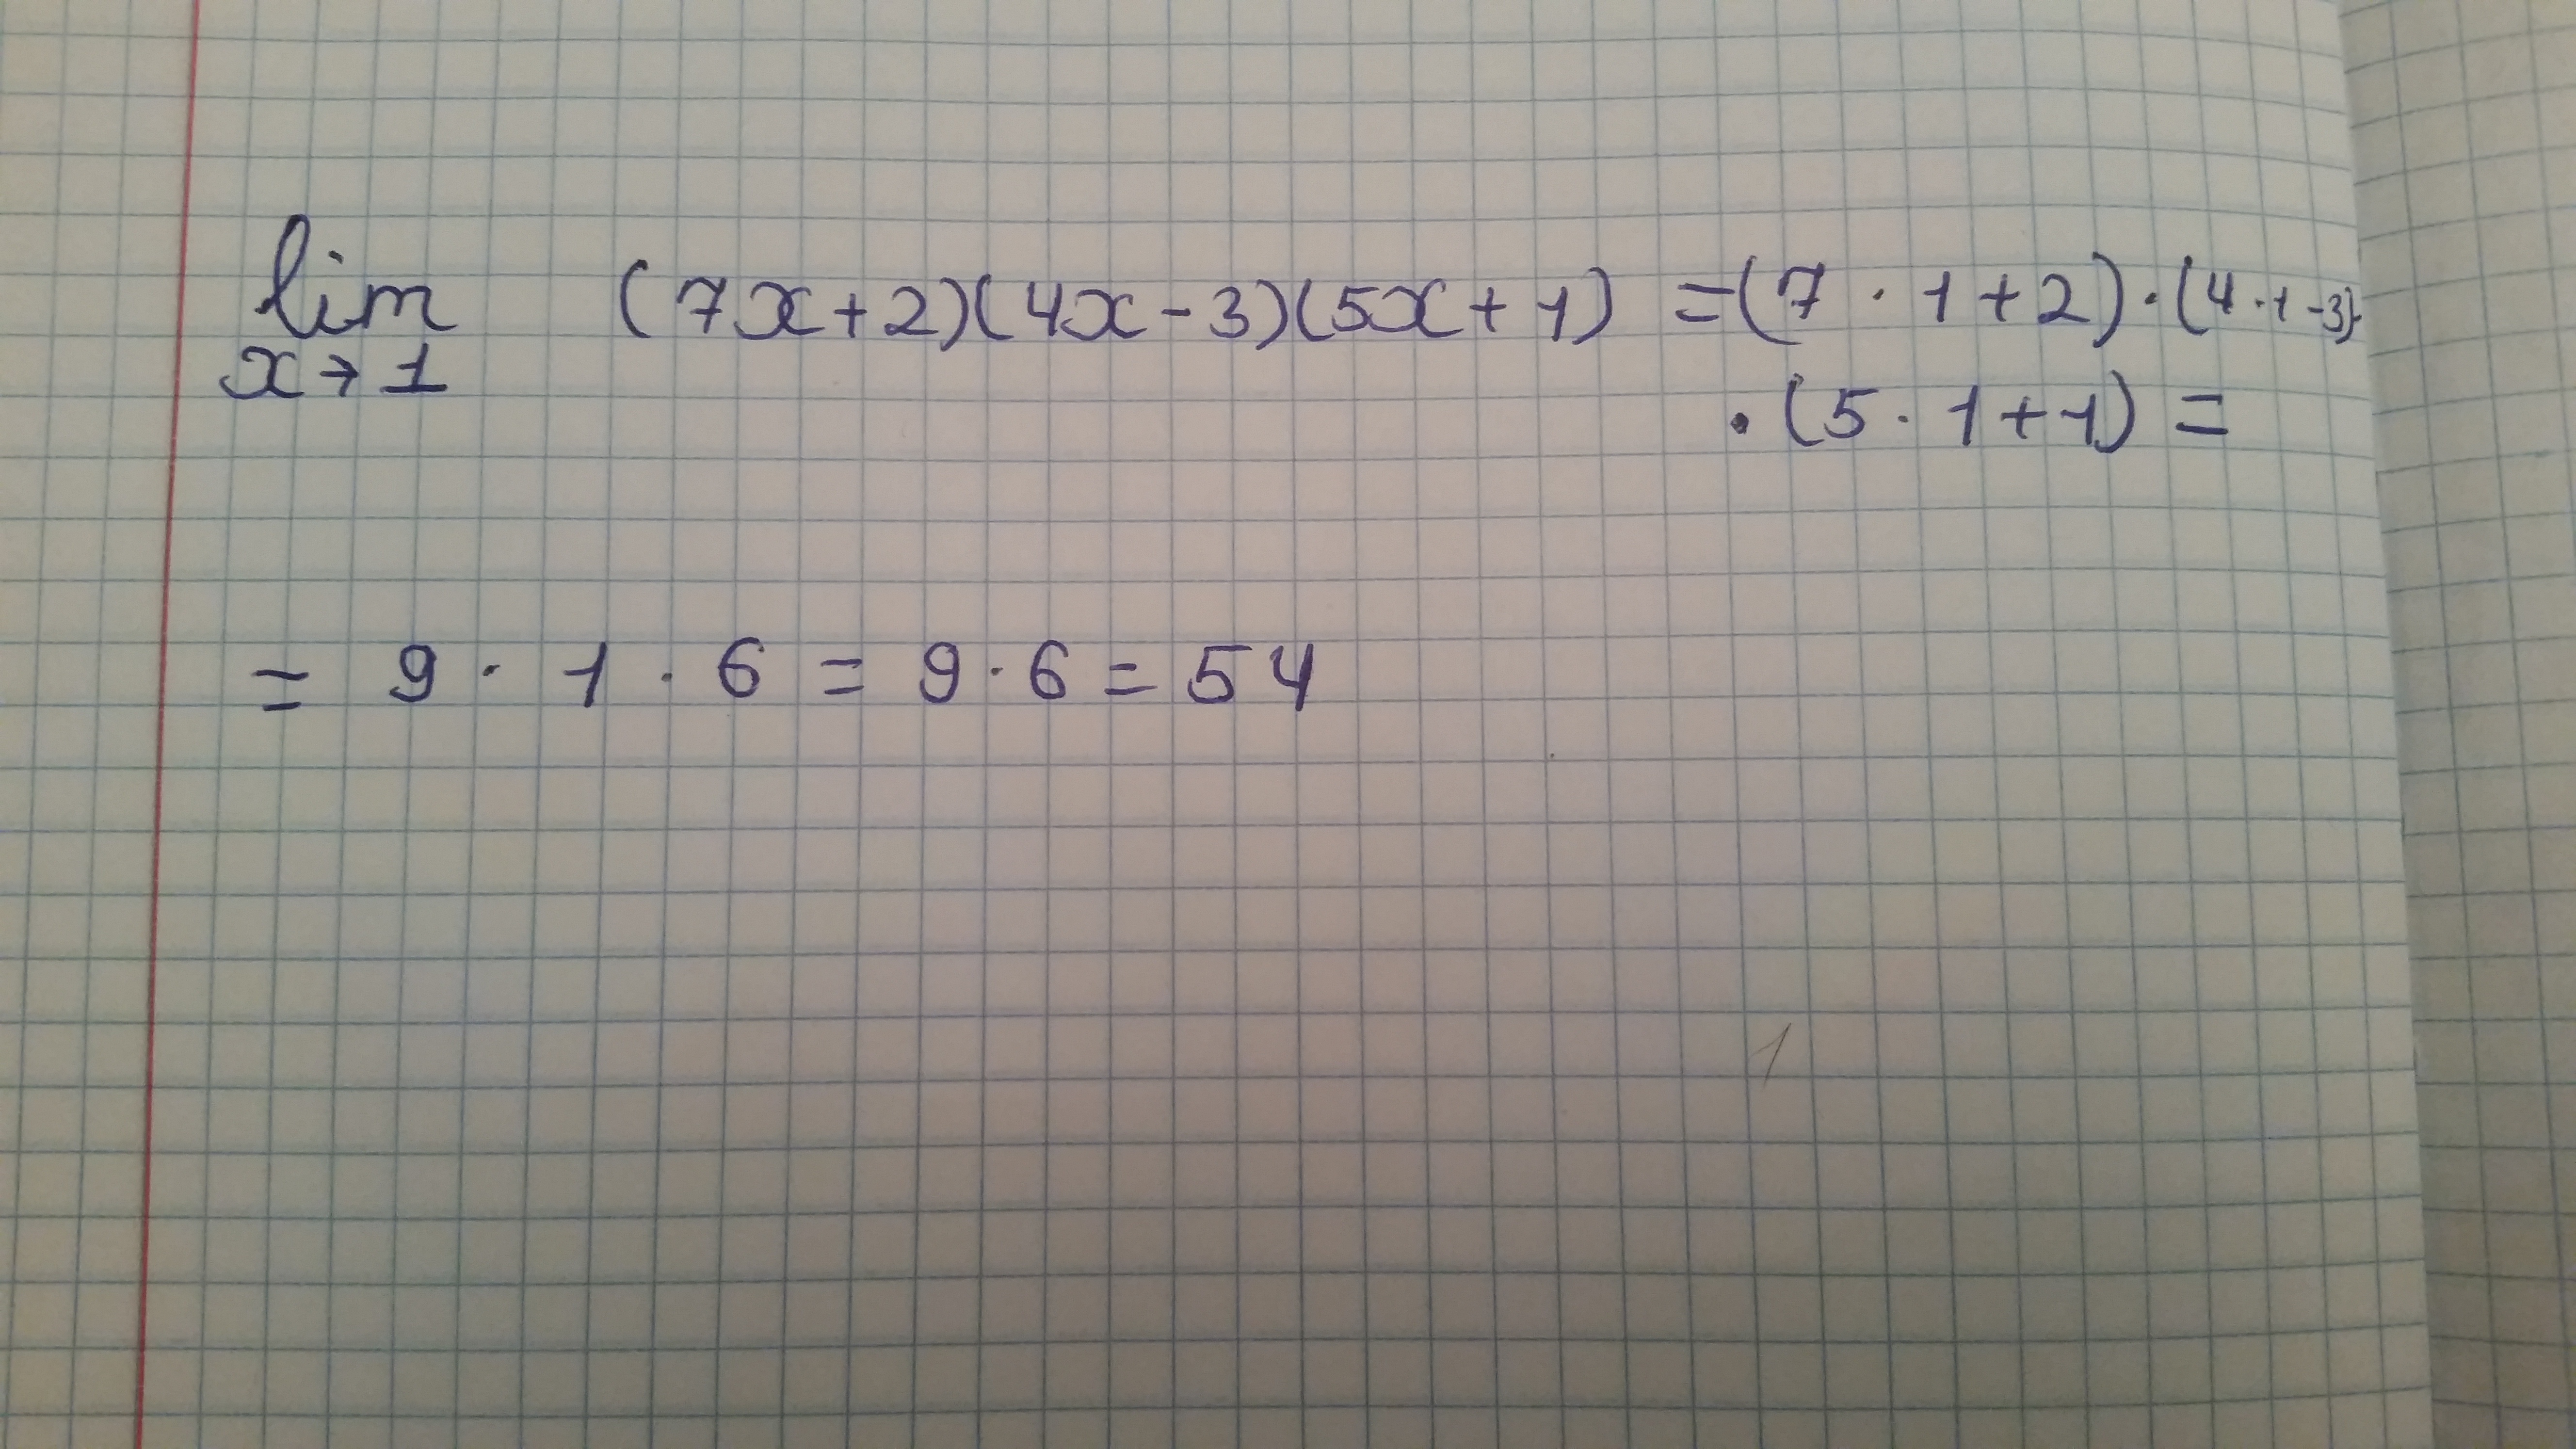 lim (7x+2)(4x-3)(5x+1) =(7 · 1+2)·(4·1-3)·
x→1
· (5 · 1+1) =
= 9 · 1 · 6 = 9·6 = 54
1